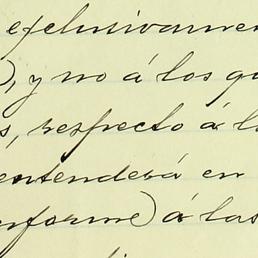 exclusivamen
), y no á los qu
s, respecto á l
entenderá en
nforme) á las